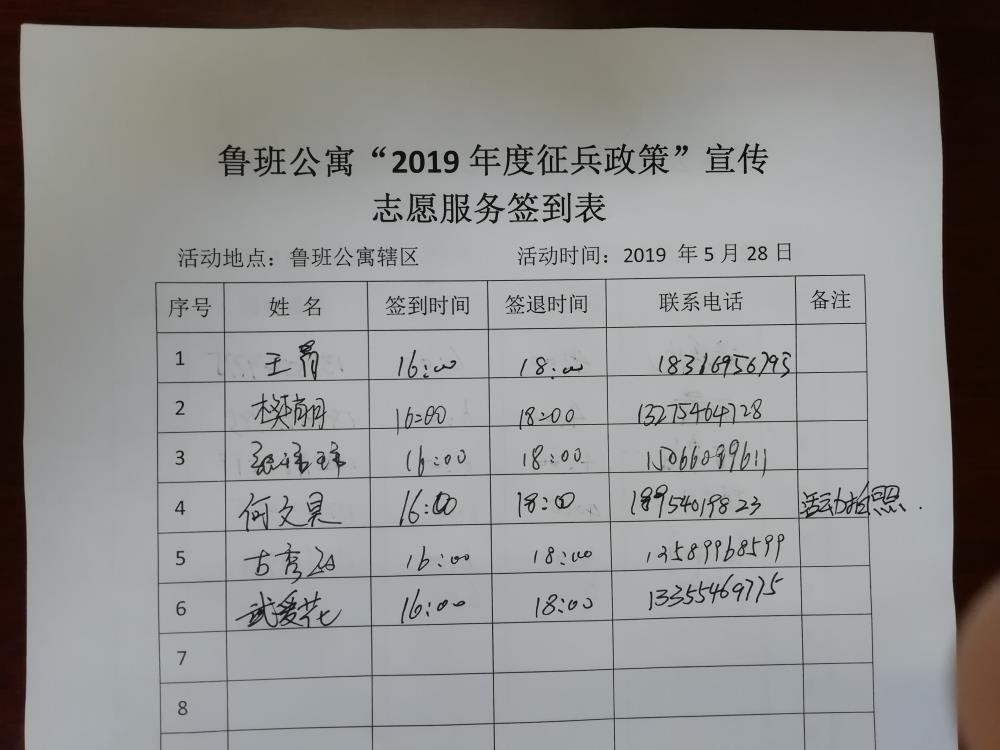 鲁班公寓“2019 年度征兵政策”宣传
志愿服务签到表
活动地点：鲁班公寓辖区 活动时间：2019 年 5 月 28 日
序号 姓 名 签到时间 签退时间 联系电话 备注
1 王 16:00 18:00 18316956795
2 樊 16:00 18:00 13275464728
3 张 16:00 18:00 15066099611
4 何文昊 16:00 18:00 18954019823 活动拍照.
5 古秀 16:00 18:00 13589968599
6 武爱花 16:00 18:00 13355469775
7
8